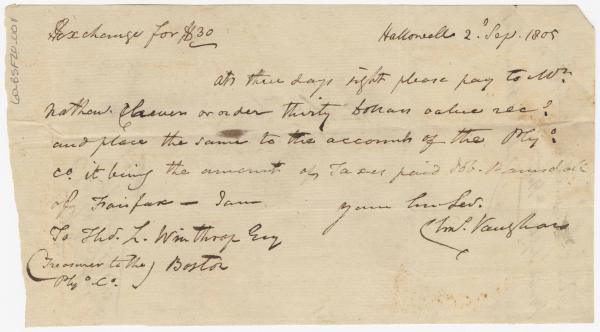 Exchange for $30 Hallowell 2d Sep. 1805
at three days sight please pay to Mr
Nathan Cleaves or order thirty Dollars value recd
and place the same to the accounts of the Plyo
Co it being the amount of Taxes paid
of Fairfax — I am your Hu Ser.
To Thos. L. Winthrop Esq Chas. Vaughan
(Treasurer to the) Boston
Plyo Co.